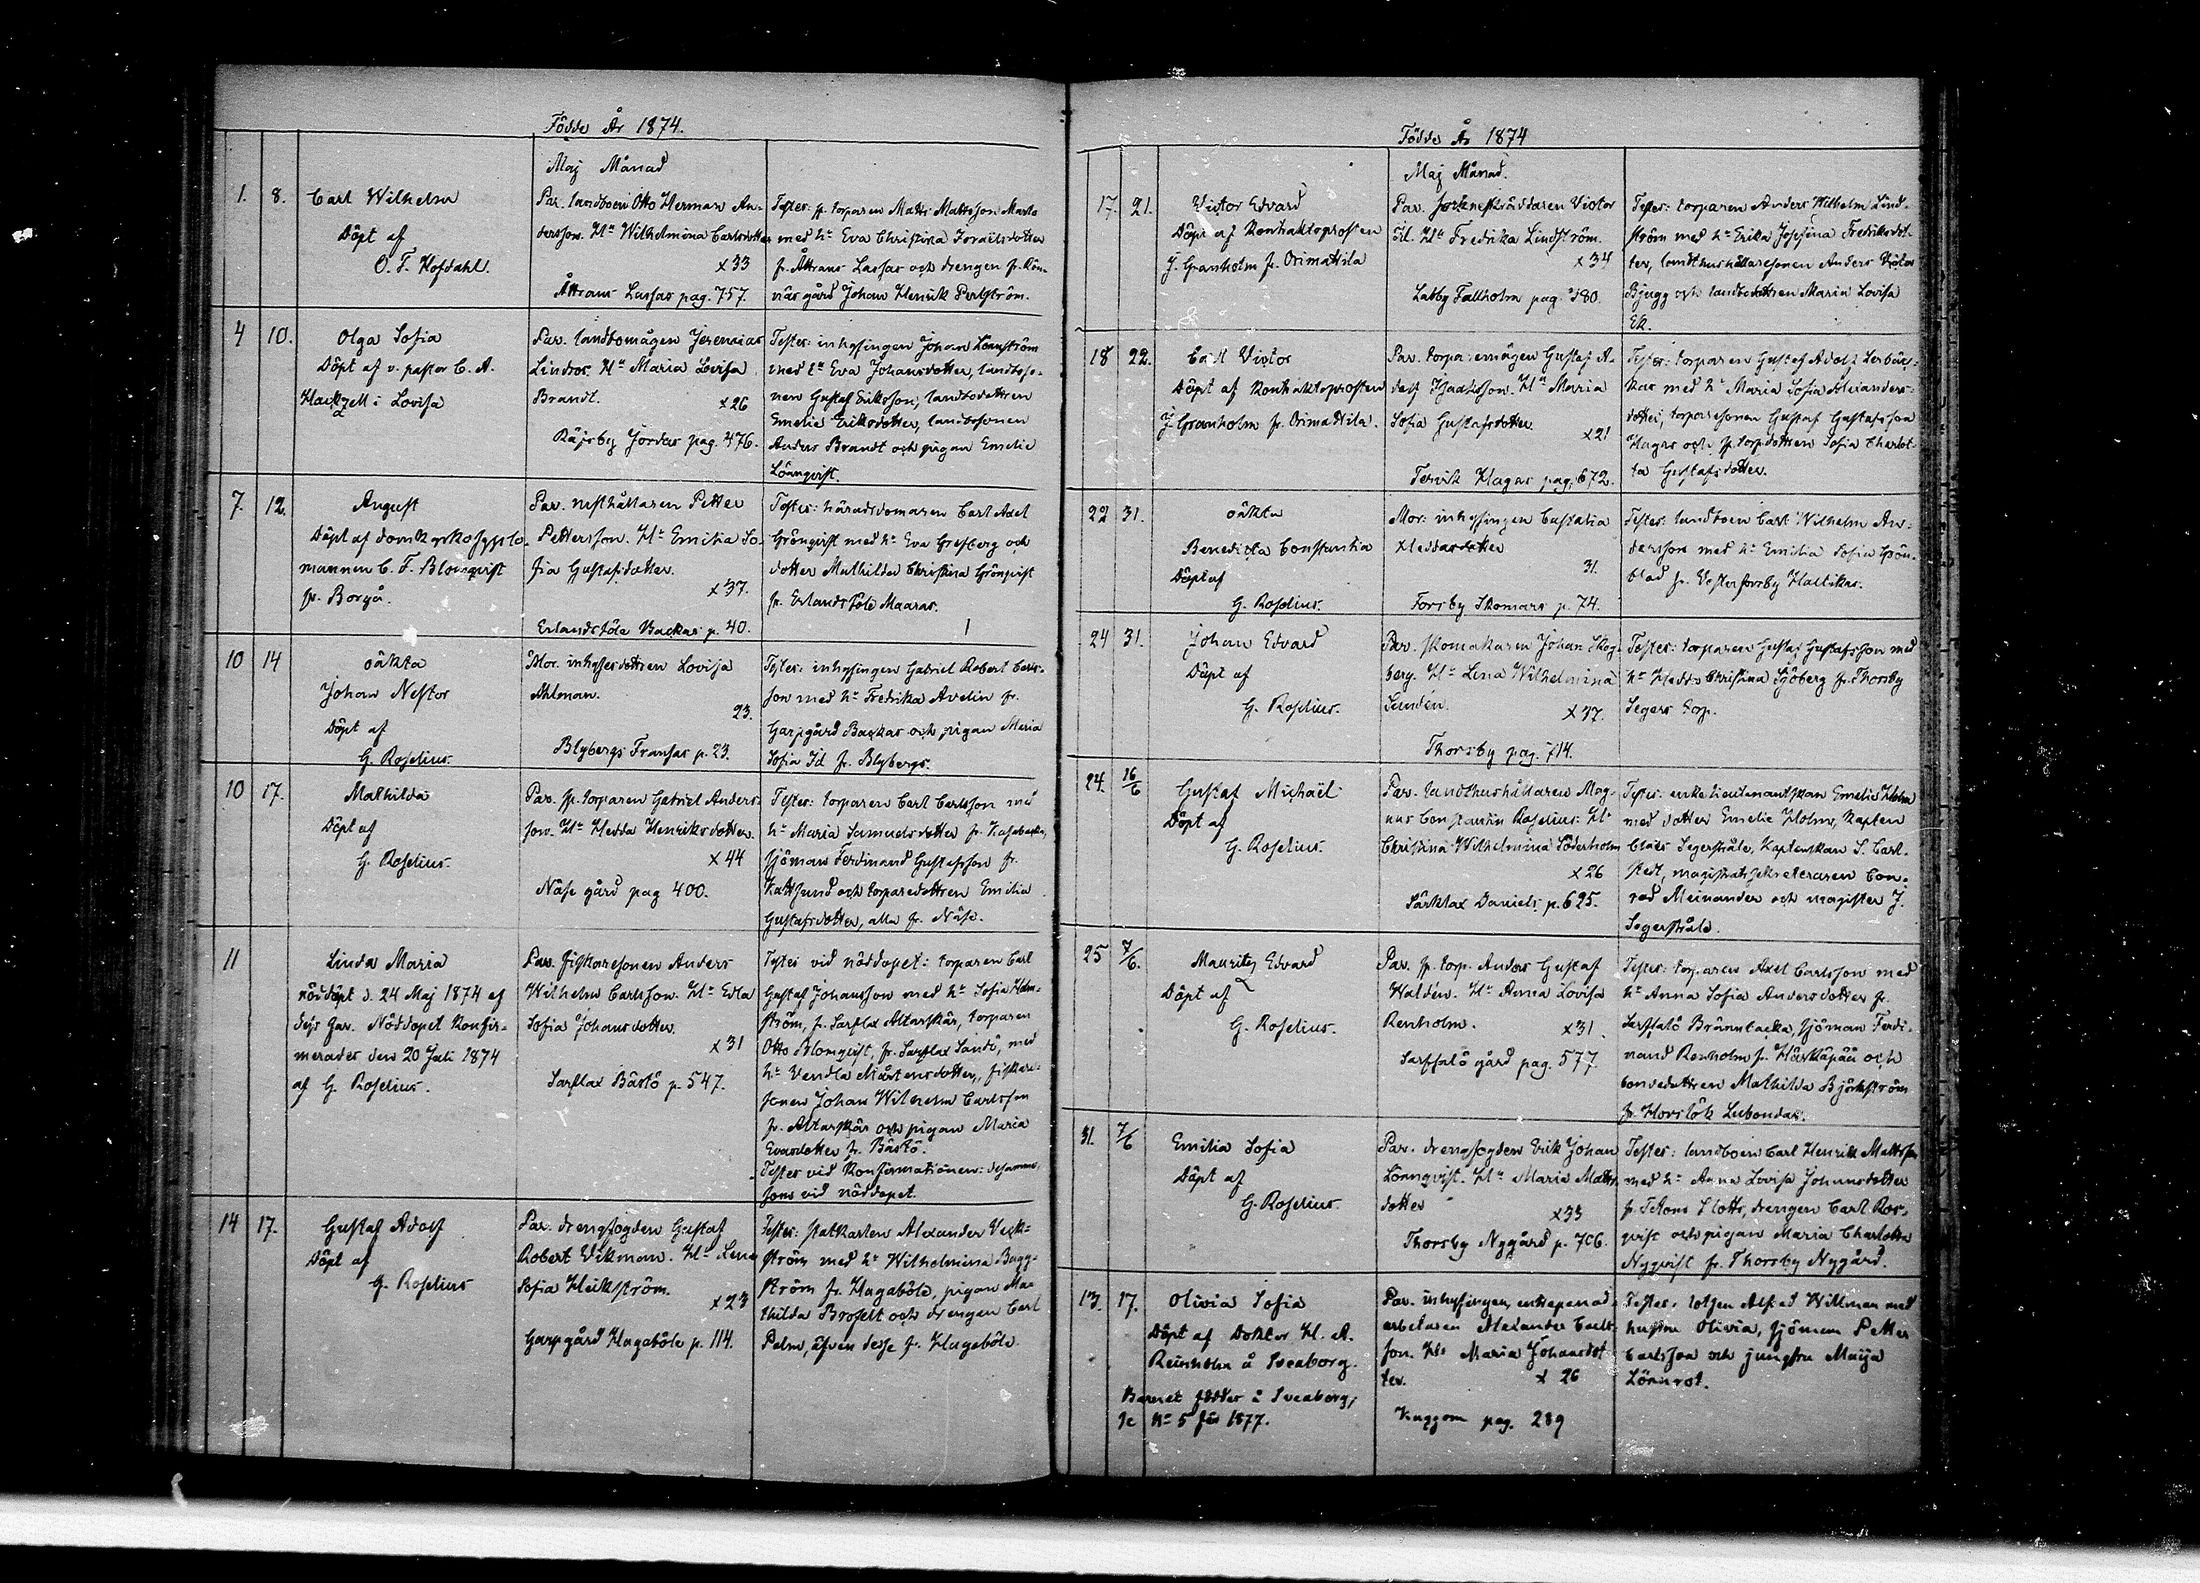 Födde År 1874.
Maj Månad
1. 8. Carl Wilhelm
Döpt af
O. F. Hofdahl.
Par. landboen Otto Herman An-
dersson. Hu Wilhelmina Carlsdotter
x33
Åttrans Lassas pag. 757.
Testes: sp. torparen Matts Mattsson
med hu Eva Christina Israëlsdotter
fr. Åttrans Lassas och drengen fr. Rön-
näs gård Johan Henrik Perlström.
4 10. Olga Sofia
Döpt af v. pastor C. A.
i Lovisa
Par. landbomågen Jeremias
Lindros Hu Maria Lovisa
Brandt. x26
Jordas pag. 476.
Testes: inhysingen Johan Lönnström
med hu Eva Johansdotter, landboso-
nen Gustaf Eriksson, landbodottren
Emelie Eriksdotter, landbosonen
Anders Brandt och pigan Emelie
Lönnqvist.
7. 12. August
Döpt af domkyrkosysslo-
mannen C. F. Blomqvist
fr. Borgå.
Par. rusthållaren Petter
Pettersson. Hu Emilia So-
fia Gustafsdotter.
x37.
Erlandsböle Backas p. 40.
Testes: häradsdomaren Carl Axel
Grönqvist med hu Eva Gresberg och
dotter Mathilda Christina Grönqvist
fr. Erlandsböle Maaras.
10 14 oäkta
Johan Nestor
Döpt af
G. Roselius.
Mor. inhysesdottren Lovisa
Ahlman.
23.
Blybergs Fransas p. 23.
Testes: inhysingen Gabriel Robert Carls-
son med hu Fredrika Avelin fr.
Garpgård Backas och pigan Maria
Sofia Id fr. Blybergs.
10 17. Mathilda
Döpt af
G. Roselius.
Par. sp. torparen Gabriel Anders-
son. Hu Hedda Henriksdotter.
x44
Näse gård pag 400.
Testes: torparen Carl Carlsson med
hu Maria Samuelsdotter fr.
sjöman Ferdinand Gustafsson fr.
Kattsund och torparedottren Emilia
Gustafsdotter, alla fr. Näse.
11 Linda Maria
nöddöpt d. 24 Maj 1874 af
dess far. Nöddopet konfir-
merades den 20 Juli 1874
af G. Roselius.
Par. fiskaresonen Anders
Wilhelm Carlsson. Hu Edla
Sofia Johansdotter.
x31
Sarflax Bästö p. 547.
Testes vid nöddopet: torparen Carl
Gustaf Johansson med hu Sofia Holm-
ström, fr. Sarflax Altarskär, torparen
Otto Blomqvist, fr. Sarflax Sandö, med
hu Vendla Mårtensdotter, fiskare-
sonen Johan Wilhelm Carlsson
fr. Altarskär och pigan Maria
Evasdotter fr. Bästö.
Testes vid konfirmationen: desamma
som vid nöddopet.
14 17. Gustaf Adolf
Döpt af
G. Roselius
Par. drengfogden Gustaf
Robert Wikman. Hu Lena
Sofia Heikström.
x23
Garpgård Hagaböle p. 114.
Testes: statkarlen Alexander Veck-
ström med hu Wilhelmina Bagg-
ström fr. Hagaböle, pigan Ma-
thilda Brofelt och drengen Carl
Palm, äfven desse fr. Hagaböle.
Födde År 1874
Maj Månad.
17. 21. Victor Edvard
Döpt af Kontraktsprosten
J. Granholm fr. Orimattila
Par. sockneskräddaren Victor
Hu Fredrika Lindström.
x34
Labby Fallholm pag. 380.
Testes: torparen Anders Wilhelm Lind-
ström med hu Erika Josefina Fredriksdot-
ter, landthushållaresonen Anders Victor
Bjugg och landbodottren Maria Lovisa
Ek.
18 22. Carl Victor
Döpt af Kontraktsprosten
J. Granholm fr. Orimattila
Par. torparemågen Gustaf A-
dolf Isaksson. Hu Maria
Sofia Gustafsdotter
x21
Tervik Hagas pag. 672.
Testes: torparen Gustaf Adolf
med hu Maria Sofia Alexanders-
dotter, torparesonen Gustaf Gustafsson
Hagas och sp. torpdottren Sofia Charlot-
ta Gustafsdotter.
22 31. oäkta
Benedicta Constantia
Döpt af
G. Roselius.
Mor: inhysingen Eustatia
Heddasdotter
31.
Forsby Skomars p. 74.
Testes: landboen Carl Wilhelm An-
dersson med hu Emilia Sofia Grön-
blad fr. Vesterforsby Hallikas.
24 31. Johan Edvard
Döpt af
G. Roselius.
Par. skomakaren Johan Skog-
berg. Hu Lena Wilhelmina
Lundén.
x37.
Thorsby pag. 714.
Testes: torparen Gustaf Gustafsson med
hu Hedda Christina Sjöberg fr. Thorsby
Segers torp.
24. 16/6 Gustaf Michaël
Döpt af
G. Roselius.
Par. landthushållaren Mag-
nus Constantin Roselius. Hu
Christina Wilhelmina Söderholm
x26
Särklax Daniels p. 625.
Testes: enkelieutenantskan Emelie Holm
med dotter Emelie Holm, Kapten
Claës Segerstråle, Kaptenskan S. Carl-
stedt, magistratssekreteraren Con-
rad Meinander och magister J.
Segerstråle.
25 7/6. Mauritz Edvard
Döpt af
G. Roselius.
Par. sp. torp. Anders Gustaf
Waldén. Hu Anna Lovisa
Renholm. x31.
Sarfsalö gård pag. 577
Testes: torparen Axel Carlsson med
hu Anna Sofia Andersdotter fr.
Sarfsalö Brännbacka, sjöman Ferdi-
nand Renholm fr. Härkäpää och
bondedottren Mathilda Björkström
fr. Horslök Lubondas.
31. 7/6 Emilia Sofia
Döpt af
G. Roselius.
Par. drengfogden Erik Johan
Lönnqvist. Hu Maria Matts-
dotter
x33
Thorsby Nygård p. 706.
Testes: landboen Carl Henrik Mattsson
med hu Anna Lovisa Johansdotter
fr. Tetom Slotts, drengen Carl Ros-
qvist och pigan Maria Charlotta
Nyqvist fr. Thorsby Nygård.
13. 17. Olivia Sofia
Döpt af Doktor H. A.
Reinholm å Sveaborg.
Barnet födder å Sveaborg,
se No 5 för 1877.
Par. inhysingen, enkepenad-
arbetaren Alexander Carls-
son. Hu Maria Johansdot-
ter. x 26
Kuggom pag. 289
Testes. lotsen Alfred Willman med
hustru Olivia, sjöman Petter
Carlsson och jungfru Maija
Lönnrot.